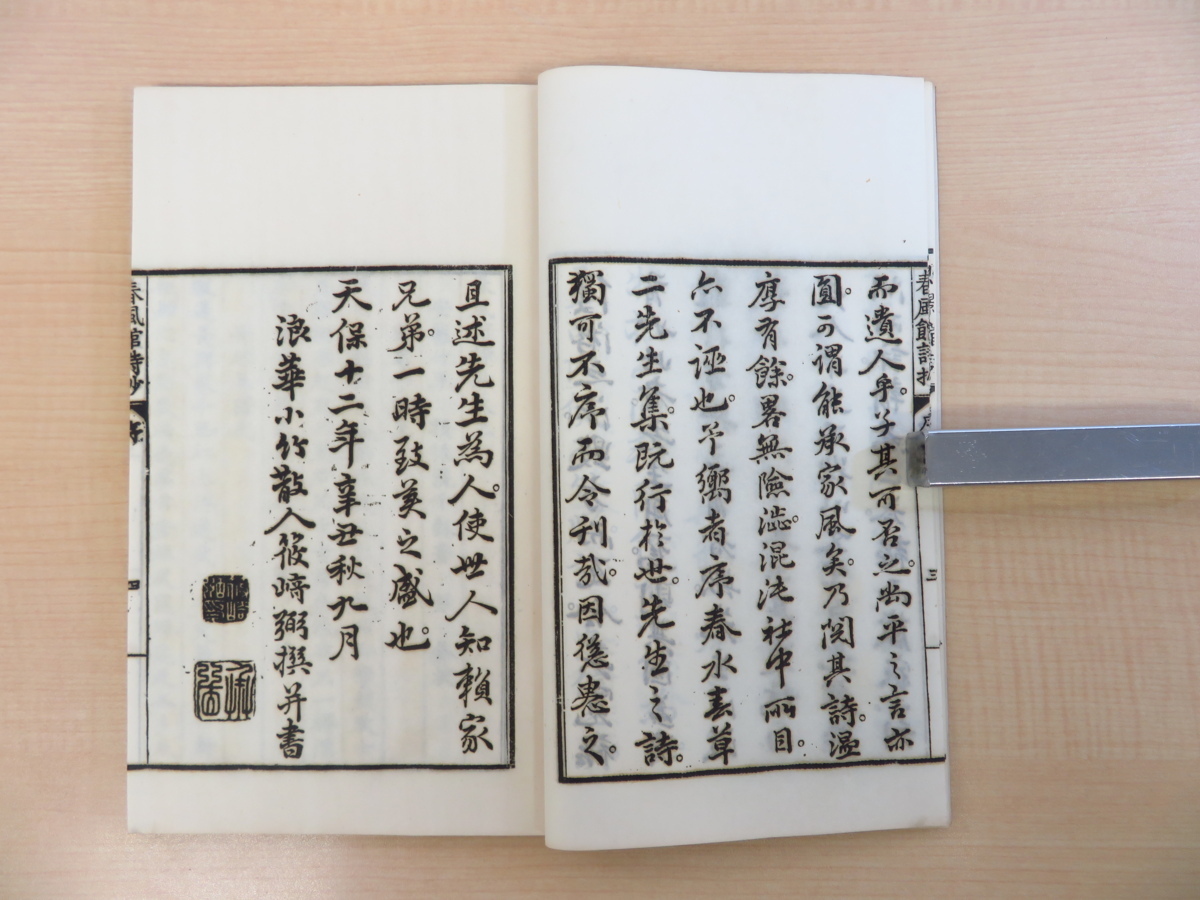 而遺人乎。子其可否之。尚平之言亦
圓。可謂能承家風矣。乃閱其詩。溫
厚有餘。畧無險澁。混沌社中所目。
亦不誣也。予嚮者序春水春草
二先生集。既行於世。先生之詩。
獨可不序而令刊哉。因慫慂之。
且述先生為人。使世人知賴家
兄弟。一時致美之盛也。
天保十二年辛丑秋九月
浪華小竹散人筱崎弼撰并書
春風館詩抄
序
四
春風館詩抄
三